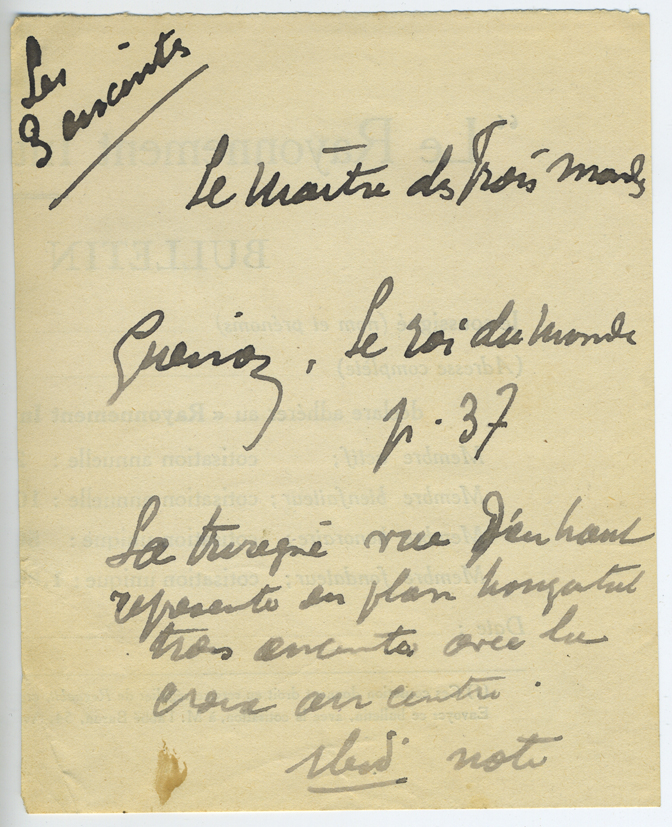 Les
3 enceintes
Le Maître des Trois mondes
Guénon, Le roi du Monde
p. 37
La tiare vue d'en haut
représente en plan
trois enceintes avec la
croix au centre.
Ibid note
"Le Rayonnement
BULLETIN
(nom et prénoms)
(Adresse complète)
déclare adhérer au « Rayonnement
Membre actif : cotisation annuelle :
Membre bienfaiteur : cotisation annuelle :
Membre fondateur : cotisation unique :
Date :